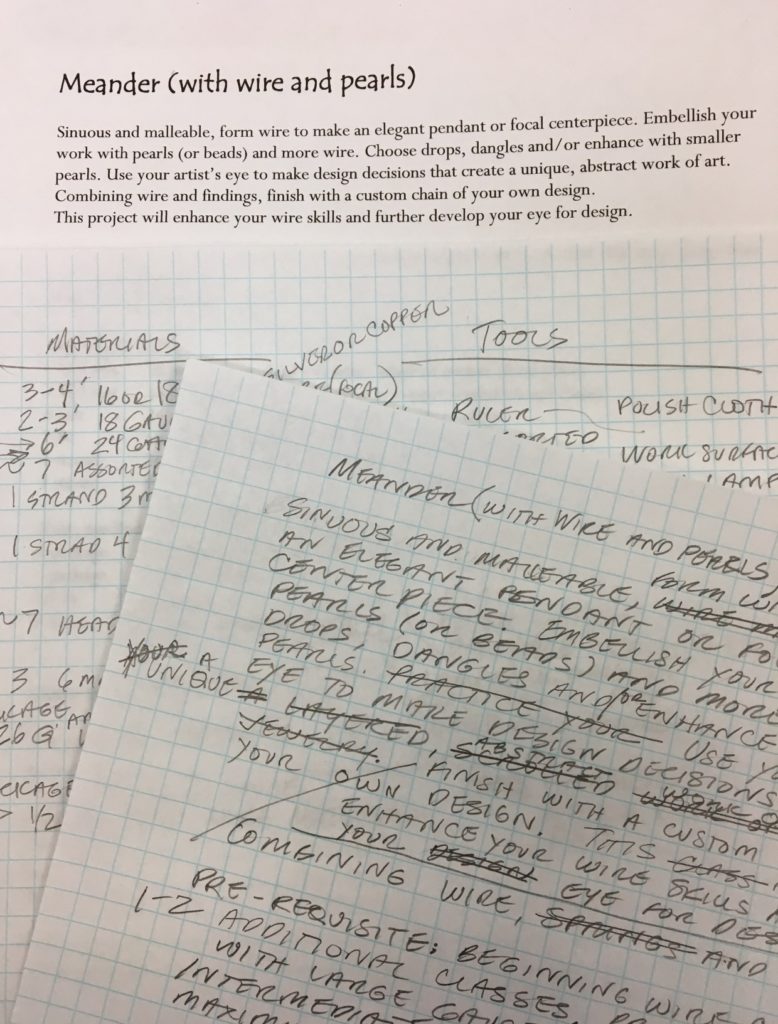 Meander (with wire and pearls)
Sinuous and malleable, form wire to make an elegant pendant or focal centerpiece. Embellish your
work with pearls (or beads) and more wire. Choose drops, dangles and/or enhance with smaller
pearls. Use your artist's eye to make design decisions that create a unique, abstract work of art.
Combining wire and findings, finish with a custom chain of your own design.
This project will enhance your wire skills and further develop your eye for design.
MATERIALS
SILVER OR COPPER
(FOCAL)
3-4' 16 OR 18
2-3' 18 GAU
6' 24 GA
7 ASSORTED
1 STRAND 3 m
1 STRAD 4
~7 HEAD
3 6 M
26 G
1/2
TOOLS
RULER
POLISH CLOTH
WORK SURFAC
MEANDER (WITH WIRE AND PEARLS)
SINUOUS AND MALLEABLE, FORM WI
AN ELEGANT PENDANT OR FO
CENTER PIECE. EMBELLISH YOUR
PEARLS (OR BEADS) AND MORE
DROPS, DANGLES AND/OR ENHANCE
PEARLS. PRACTICE YOUR USE YO
YOUR A EYE TO MAKE DESIGN DECISIONS
UNIQUE A LAYERED, ABSTRACT
JEWELRY. FINISH WITH A CUSTOM
YOUR OWN DESIGN. THIS CLASS
ENHANCE YOUR WIRE SKILLS
YOUR DESIGN EYE FOR DES
COMBINING WIRE, SPRINGS AND
PRE-REQUISITE: BEGINNING WIRE
1-2 ADDITIONAL CLASSES.
WITH LARGE GAU
INTERMEDIA
MAXIM